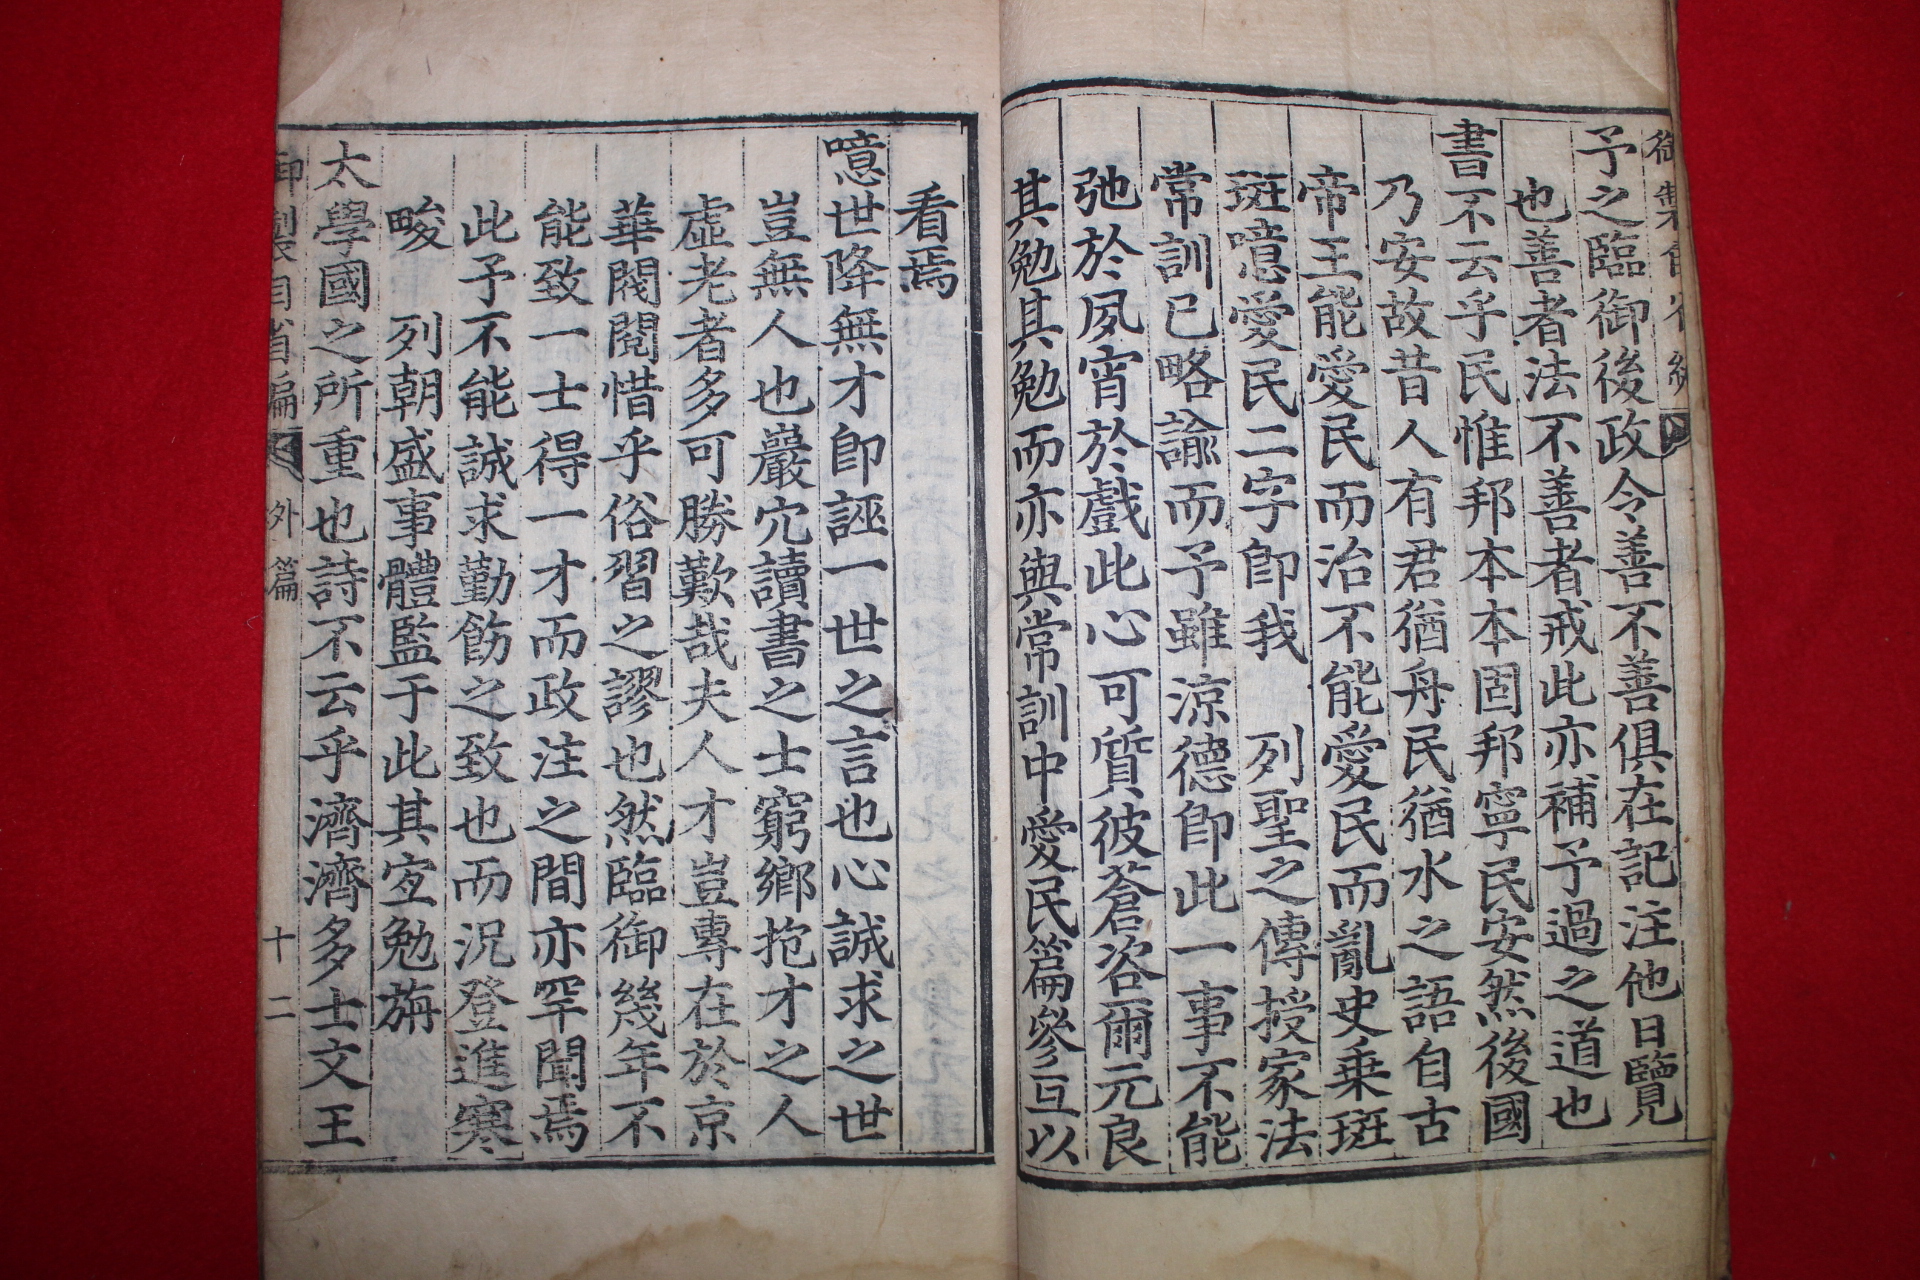 御製自省編
予之臨御後政令善不善俱在記注他日覽
也善者法不善者戒此亦補予過之道也
書不云乎民惟邦本本固邦寧民安然後國
乃安故昔人有君猶舟民猶水之語自古
帝王能愛民而治不能愛民而亂史乗斑
斑噫愛民二字卽我 列聖之傳授家法
常訓已略諭而予雖涼德卽此一事不能
弛於夙宵於戲此心可質彼蒼咨爾元良
其勉其勉而亦與常訓中愛民篇參互以
看焉
噫世降無才卽誣一世之言也心誠求之世
豈無人也巖穴讀書之士窮鄉抱才之人
虛老者多可勝歎哉夫人才豈專在於京
華閥閱惜乎俗習之謬也然臨御幾年不
能致一士得一才而政注之間亦罕聞焉
此予不能誠求勤飭之致也而況登進寒
畯 列朝盛事體監于此其宜勉旃
太學國之所重也詩不云乎濟濟多士文王
御製自省編 外篇 十二